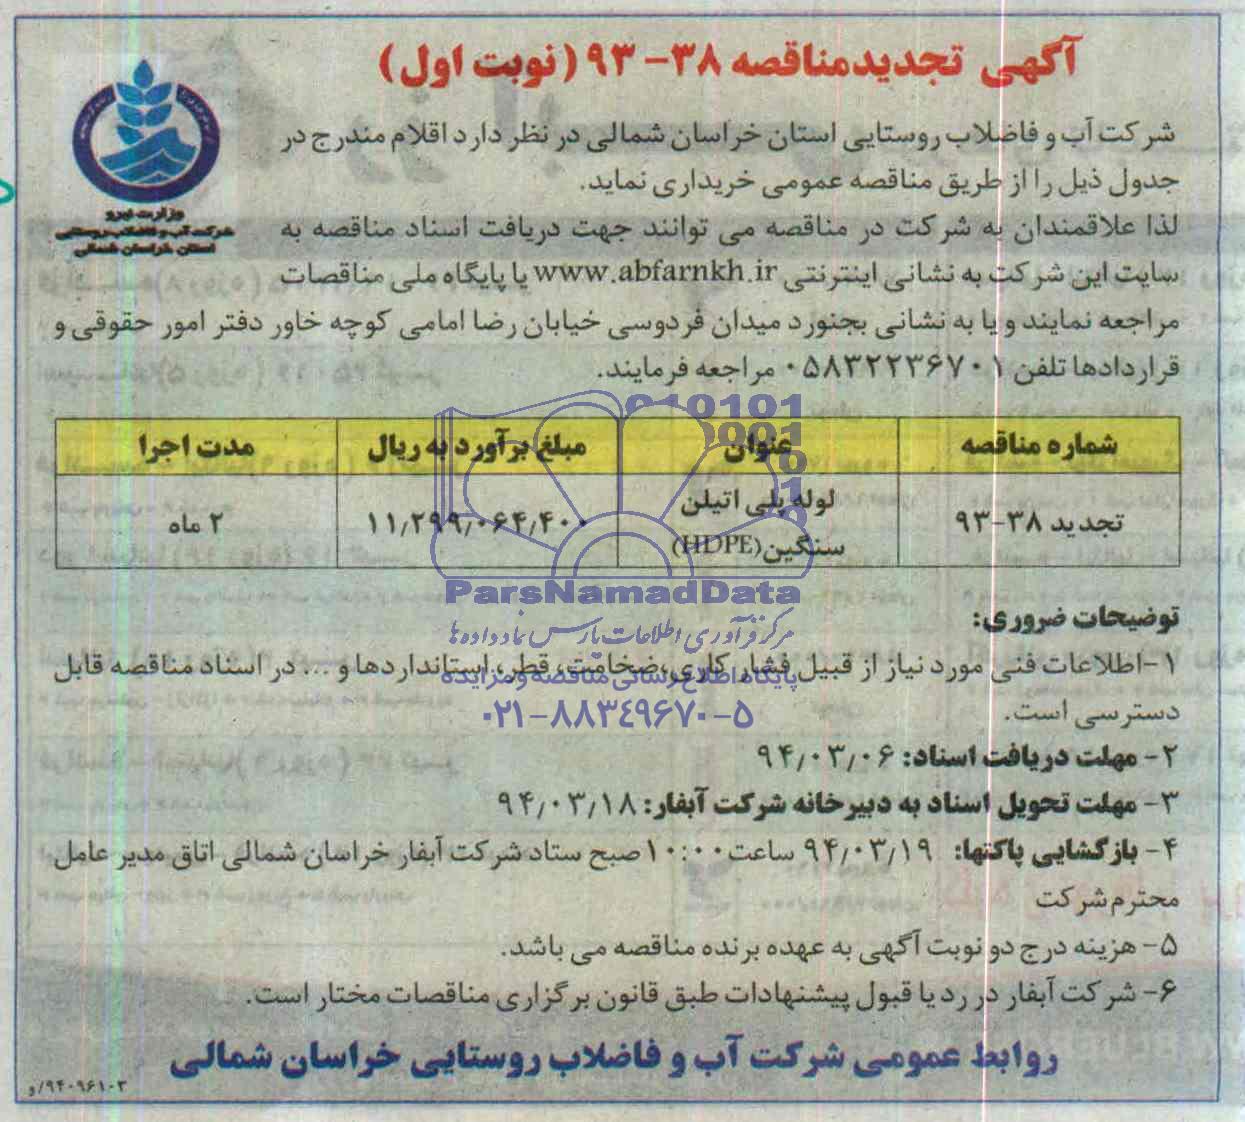 آگهی تجدیدمناقصه ۳۸-۹۳ (نوبت اول)
وزارت نیرو
شرکت آب و فاضلاب روستایی
استان خراسان شمالی
شرکت آب و فاضلاب روستایی استان خراسان شمالی در نظر دارد اقلام مندرج در
جدول ذیل را از طریق مناقصه عمومی خریداری نماید.
لذا علاقمندان به شرکت در مناقصه می توانند جهت دریافت اسناد مناقصه به
سایت این شرکت به نشانی اینترنتی www.abfarnkh.ir یا پایگاه ملی مناقصات
مراجعه نمایند و یا به نشانی بجنورد میدان فردوسی خیابان رضا امامی کوچه خاور دفتر امور حقوقی و
قراردادها تلفن ۰۵۸۳۲۲۳۶۷۰۱ مراجعه فرمایند.
شماره مناقصه عنوان مبلغ برآورد به ریال مدت اجرا
تجدید ۳۸-۹۳ لوله پلی اتیلن ۱۱٫۲۹۹٫۰۶۴٫۴۰۰ ۲ ماه
سنگین(HDPE)
ParsNamadData
مرکز فرآوری اطلاعات پارس نماد داده ها
پایگاه اطلاع رسانی مناقصه و مزایده
۰۲۱-۸۸۳۴۹۶۷۰-۵
توضیحات ضروری:
۱-اطلاعات فنی مورد نیاز از قبیل فشار کاری، ضخامت، قطر، استانداردها و ... در اسناد مناقصه قابل
دسترسی است.
۲- مهلت دریافت اسناد: ۹۴٫۰۳٫۰۶
۳- مهلت تحویل اسناد به دبیرخانه شرکت آبفار: ۹۴٫۰۳٫۱۸
۴- بازگشایی پاکتها: ۹۴٫۰۳٫۱۹ ساعت ۱۰:۰۰ صبح ستاد شرکت آبفار خراسان شمالی اتاق مدیر عامل
محترم شرکت
۵- هزینه درج دو نوبت آگهی به عهده برنده مناقصه می باشد.
۶- شرکت آبفار در رد یا قبول پیشنهادات طبق قانون برگزاری مناقصات مختار است.
روابط عمومی شرکت آب و فاضلاب روستایی خراسان شمالی
۹۴۰۹۶۱۰۲/و